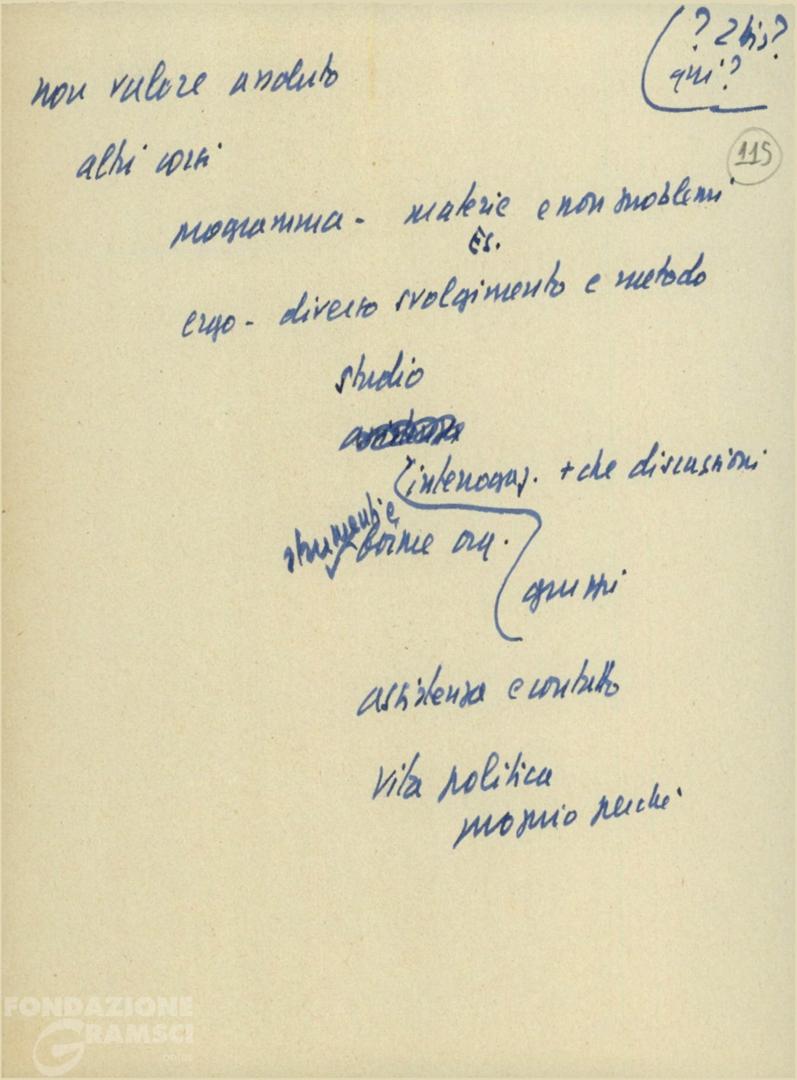 ? 2 bis?
qui?
non valore assoluto
115
altri corsi
programma - materie e non problemi
Es.
ergo - diverso svolgimento e metodo
studio
interrogaz. + che discussioni
strumenti e
forme org.
gruppi
assistenza e contatto
vita politica
proprio perché
FONDAZIONE
GRAMSCI
onlus